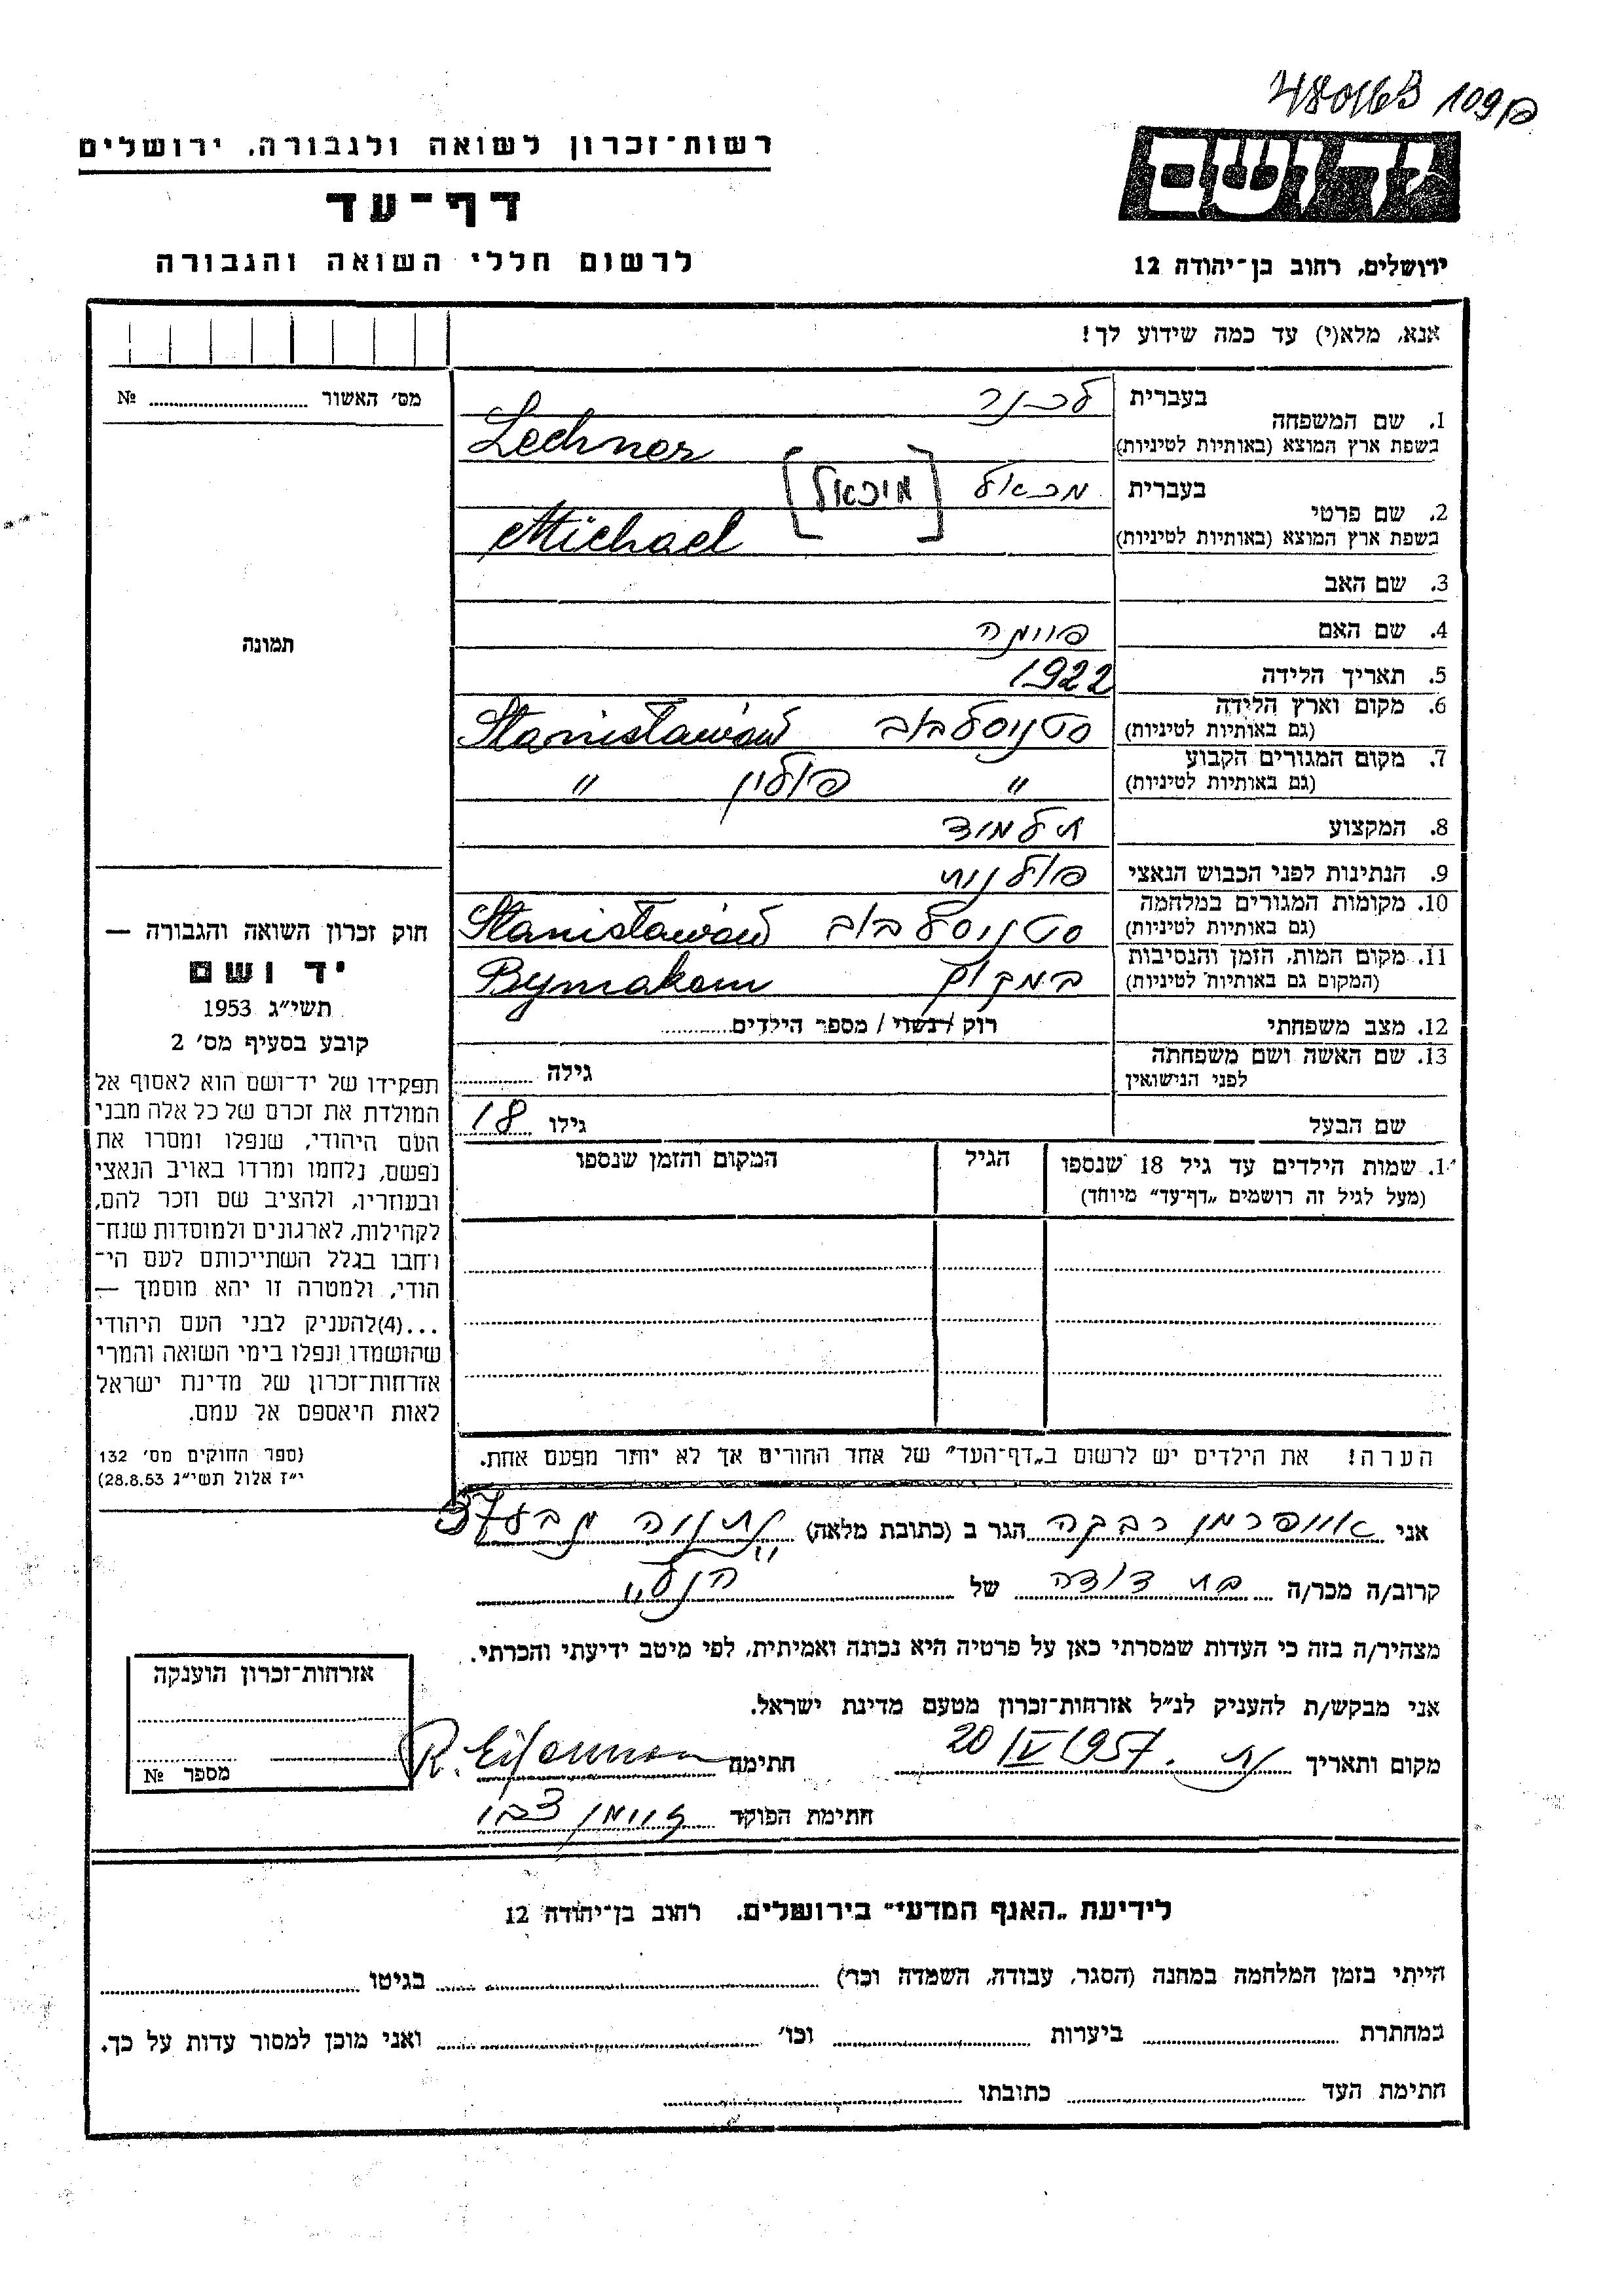 480163 109פ
רשות־זכרון לשואה ולגבורה, ירושלים
דף־עד
לרשום חללי השואה והגבורה
יד ושם
ירושלים, רחוב בן־יהודה 12
אנא, מלא(י) עד כמה שידוע לך!
מס׳ האשור ........ №
תמונה
חוק זכרון השואה והגבורה —
יד ושם
תשי״ג 1953
קובע בסעיף מס׳ 2
תפקידו של יד־ושם הוא לאסוף אל
המולדת את זכרם של כל אלה מבני
העם היהודי, שנפלו ומסרו את
נפשם, נלחמו ומרדו באויב הנאצי
ובעוזריו, ולהציב שם וזכר להם,
לקהילות, לארגונים ולמוסדות שנח־
רבו בגלל השתייכותם לעם הי־
הודי, ולמטרה זו יהא מוסמך —
...(4)להעניק לבני העם היהודי
שהושמדו ונפלו בימי השואה והמרי
אזרחות־זכרון של מדינת ישראל
לאות היאספם אל עמם.
(ספר החוקים מס׳ 132
י״ז אלול תשי״ג 28.8.53)
1. שם המשפחה בעברית לכנר
בשפת ארץ המוצא (באותיות לטיניות) Lechner
2. שם פרטי בעברית מכאל [מיכאל]
בשפת ארץ המוצא (באותיות לטיניות) Michael
3. שם האב
4. שם האם פויומה
5. תאריך הלידה 1922
6. מקום וארץ הלידה (גם באותיות לטיניות) סטניסלבוב Stanisławów
7. מקום המגורים הקבוע (גם באותיות לטיניות) " פולין "
8. המקצוע תלמיד
9. הנתינות לפני הכבוש הנאצי פולנית
10. מקומות המגורים במלחמה (גם באותיות לטיניות) סטניסלבוב Stanisławów
11. מקום המות, הזמן והנסיבות (המקום גם באותיות לטיניות) במקום Bymakom
12. מצב משפחתי רוק / נשוי / מספר הילדים........
13. שם האשה ושם משפחתה לפני הנישואין גילה ........
שם הבעל גילו 18
1. שמות הילדים עד גיל 18 שנספו (מעל לגיל זה רושמים „דף־עד״ מיוחד) הגיל המקום והזמן שנספו
הערה! את הילדים יש לרשום ב„דף־העד״ של אחד ההורים אך לא יותר מפעם אחת.
אני אייפרמן רבקה הגר ב (כתובת מלאה) נתניה
קרוב/ה מכר/ה בת דודה של הנ״ל
מצהיר/ה בזה כי העדות שמסרתי כאן על פרטיה היא נכונה ואמיתית, לפי מיטב ידיעתי והכרתי.
אני מבקש/ת להעניק לנ״ל אזרחות־זכרון מטעם מדינת ישראל.
מקום ותאריך 20/IV 1957. חתימה
חתימת הפוקד צבי
אזרחות־זכרון הוענקה
מספר №
לידיעת „האגף המדעי״ בירושלים, רחוב בן־יהודה 12
הייתי בזמן המלחמה במחנה (הסגר, עבודה, השמדה וכד׳) ........ בגיטו ........
במחתרת ........ ביערות ........ וכו׳ ........ ואני מוכן למסור עדות על כך.
חתימת העד ........ כתובתו ........